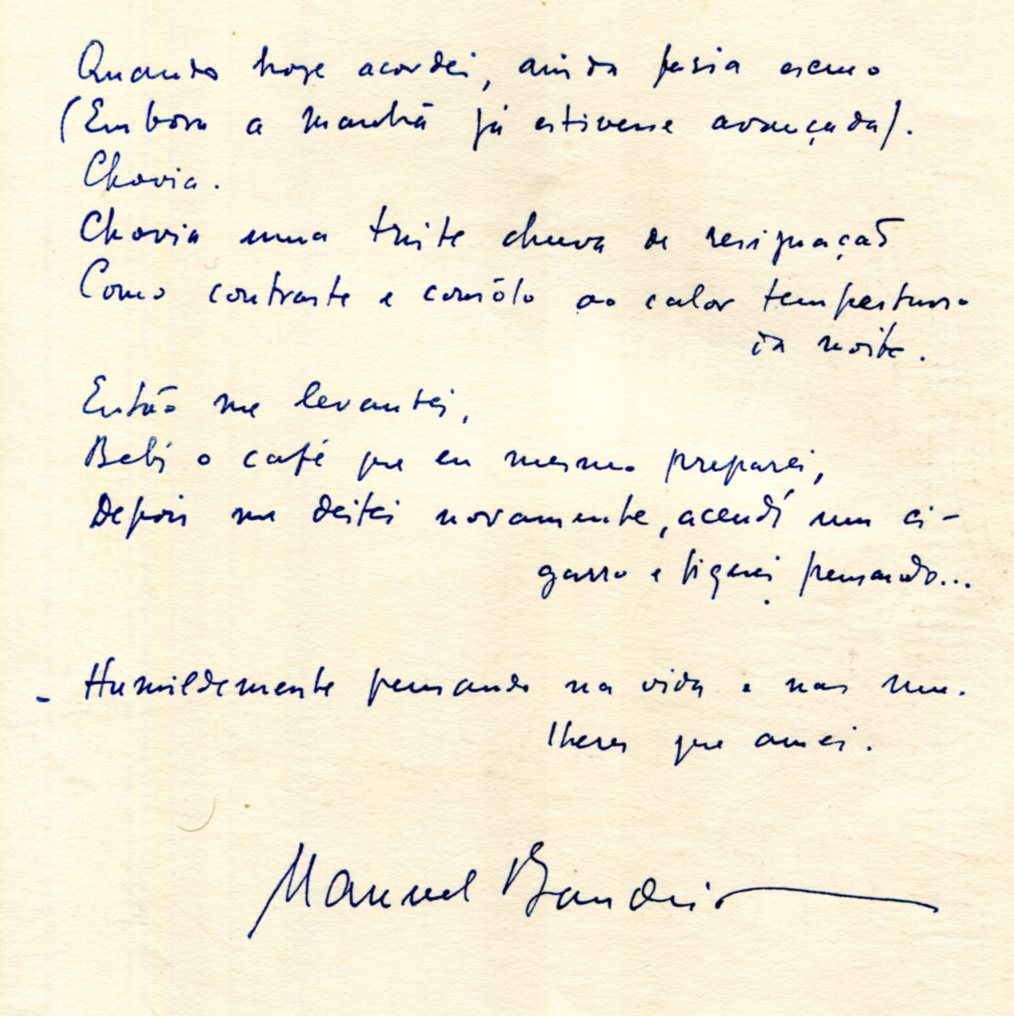 Quando hoje acordei, ainda fazia escuro
(Embora a manhã já estivesse avançada).
Chovia.
Chovia uma triste chuva de resignação
Como contraste e consôlo ao calor tempestuoso
da noite.
Então me levantei,
Bebi o café que eu mesmo preparei,
Depois me deitei novamente, acendí um ci-
garro e fiquei pensando...
- Humildemente pensando na vida e nas mu-
lheres que amei.
Manuel Bandeira